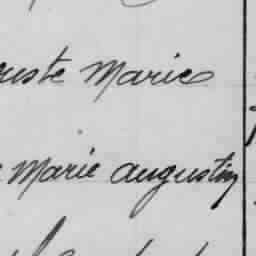 uste Marie
Marie augustin